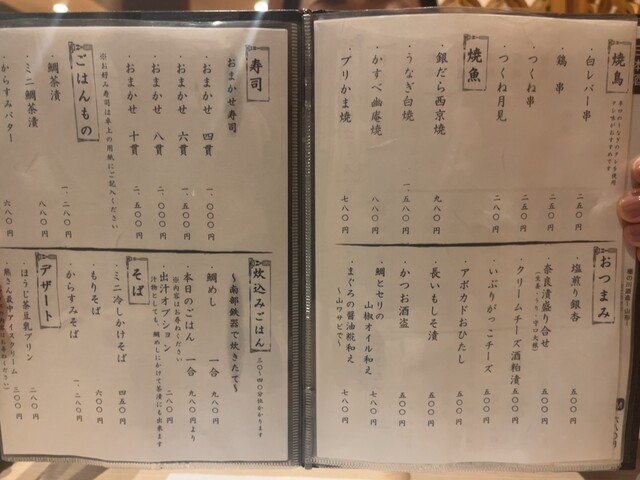 焼鳥
・白レバー串 二五〇円
・鶏串 二五〇円
・つくね串 二五〇円
・つくね月見 二八〇円
焼魚
・銀だら西京焼 九八〇円
・うなぎ白焼 一、五八〇円
・かすべ幽庵焼 八八〇円
・ブリかま焼 七八〇円
おつまみ
・塩煎り銀杏 五〇〇円
・奈良漬盛り合せ 五〇〇円
・クリームチーズ酒粕漬 五〇〇円
・いぶりがっこチーズ 五〇〇円
・アボカドおひたし 五八〇円
・長いもしそ漬 五〇〇円
・かつお酒盗 五〇〇円
・鯛とセリの
山椒オイル和え 七八〇円
・まぐろの醤油糀和え
〜山ワサビで〜 七八〇円
寿司
おまかせ寿司
・おまかせ 四貫 一、〇〇〇円
・おまかせ 六貫 一、五〇〇円
・おまかせ 八貫 二、〇〇〇円
・おまかせ 十貫 二、五〇〇円
※お好み寿司は卓上の用紙にご記入ください
ごはんもの
・鯛茶漬 一、二八〇円
・ミニ鯛茶漬 八八〇円
・からすみバター 六八〇円
炊込みごはん
三〇〜四〇分位かかります
〜南部鉄器で炊きたて〜
・鯛めし 一合 九八〇円
・本日のごはん 一合 九八〇円より
※内容はお尋ねください
・出汁オプション 二八〇円
汁物としても、鯛めしにかけて茶漬にも出来ます
そば
・ミニ冷しかけそば 四五〇円
・もりそば 六〇〇円
・からすみそば 一、二八〇円
デザート
・ほうじ茶豆乳プリン 二八〇円
三〇〇円